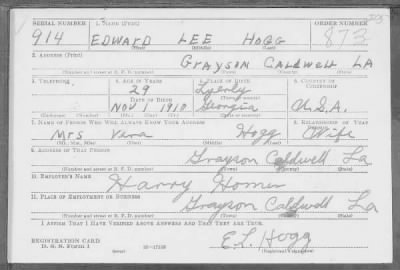 SERIAL NUMBER 1. NAME (Print) ORDER NUMBER
914 EDWARD LEE HOGG 873
(First) (Middle) (Last)
2. ADDRESS (Print)
GRAYSON CALDWELL LA
(Number and street or R. F. D. number) (Town) (County) (State)
3. TELEPHONE 4. AGE IN YEARS 5. PLACE OF BIRTH 6. COUNTRY OF CITIZENSHIP
29 Lyerly
(Town or county)
DATE OF BIRTH
Nov 1 1910 Georgia U.S.A.
(Exchange) (Number) (Mo.) (Day) (Yr.) (State or country)
7. NAME OF PERSON WHO WILL ALWAYS KNOW YOUR ADDRESS 8. RELATIONSHIP OF THAT PERSON
Mrs Vera Hogg Wife
(Mr., Mrs., Miss) (First) (Middle) (Last)
9. ADDRESS OF THAT PERSON
Grayson Caldwell La
(Number and street or R. F. D. number) (Town) (County) (State)
10. EMPLOYER'S NAME
Harry Homer
11. PLACE OF EMPLOYMENT OR BUSINESS
Grayson Caldwell La
(Number and street or R. F. D. number) (Town) (County) (State)
I AFFIRM THAT I HAVE VERIFIED ABOVE ANSWERS AND THAT THEY ARE TRUE.
REGISTRATION CARD
D. S. S. Form 1 (over) E.L. Hogg
(Registrant's signature)